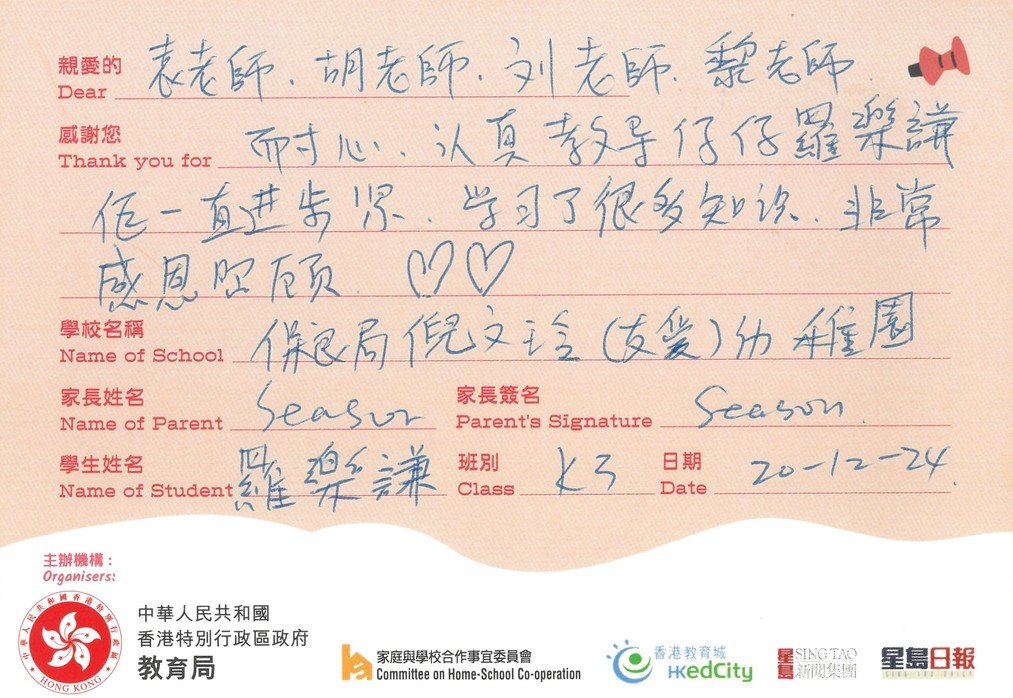 親愛的 袁老師、胡老師、刘老師、黎老師
Dear
感謝您 耐心、认真教导仔仔羅樂謙
Thank you for
佢一直进步紧、学习了很多知识、非常
感恩照顾 ♡♡
學校名稱 保良局倪文玲(友愛)幼稚園
Name of School
家長姓名 Season 家長簽名 Season
Name of Parent Parent's Signature
學生姓名 羅樂謙 班別 K3 日期 20-12-24
Name of Student Class Date
主辦機構：
Organisers:
中華人民共和國香港特別行政區政府
HONG KONG
中華人民共和國
香港特別行政區政府
教育局
家庭與學校合作事宜委員會
Committee on Home-School Co-operation
香港教育城
HKedCity
星島 SING TAO
新聞集團
星島日報
SING TAO DAILY